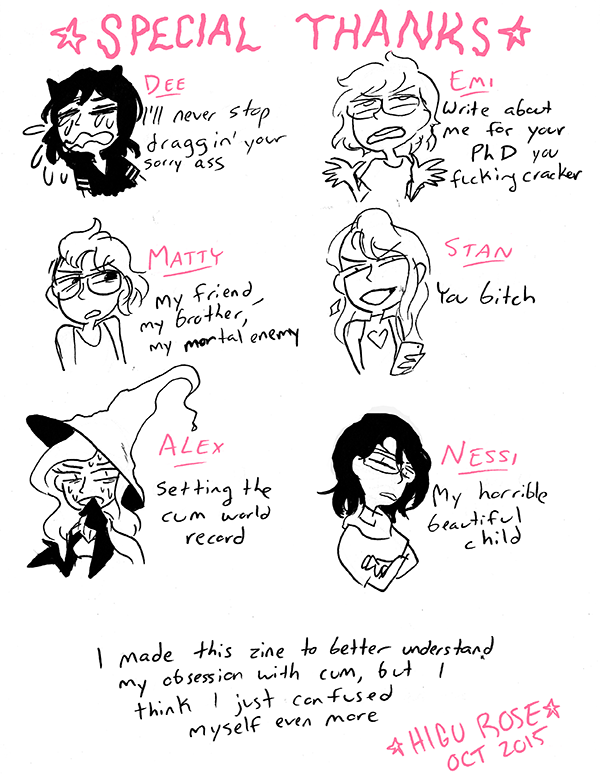 SPECIAL THANKS
DEE
I'll never stop
draggin' your
sorry ass
EMI
Write about
me for your
PhD you
fucking cracker
MATTY
My friend,
my brother,
my mortal enemy
STAN
You bitch
ALEX
Setting the
cum world
record
NESSI
My horrible
beautiful
child
I made this zine to better understand
my obsession with cum, but I
think I just confused
myself even more
HIGU ROSE
OCT 2015